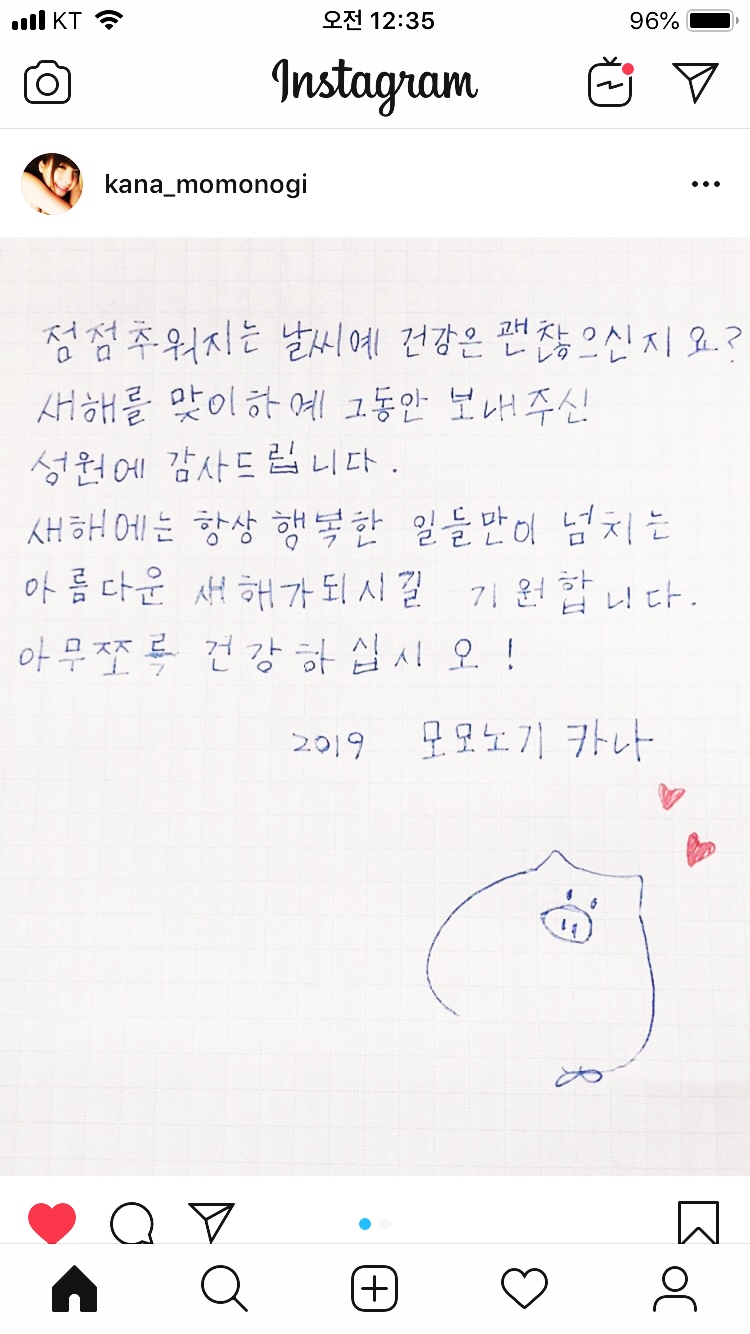 KT 오전 12:35 96%
Instagram
kana_momonogi
점점추워지는 날씨예 건강은 괜찮으신지요?
새해를 맞이하예 그동안 보내주신
성원에 감사드립니다.
새해에는 항상 행복한 일들만이 넘치는
아름다운 새해가되시길 기원합니다.
아무쪼록 건강하십시오!
2019 모모노기 카나